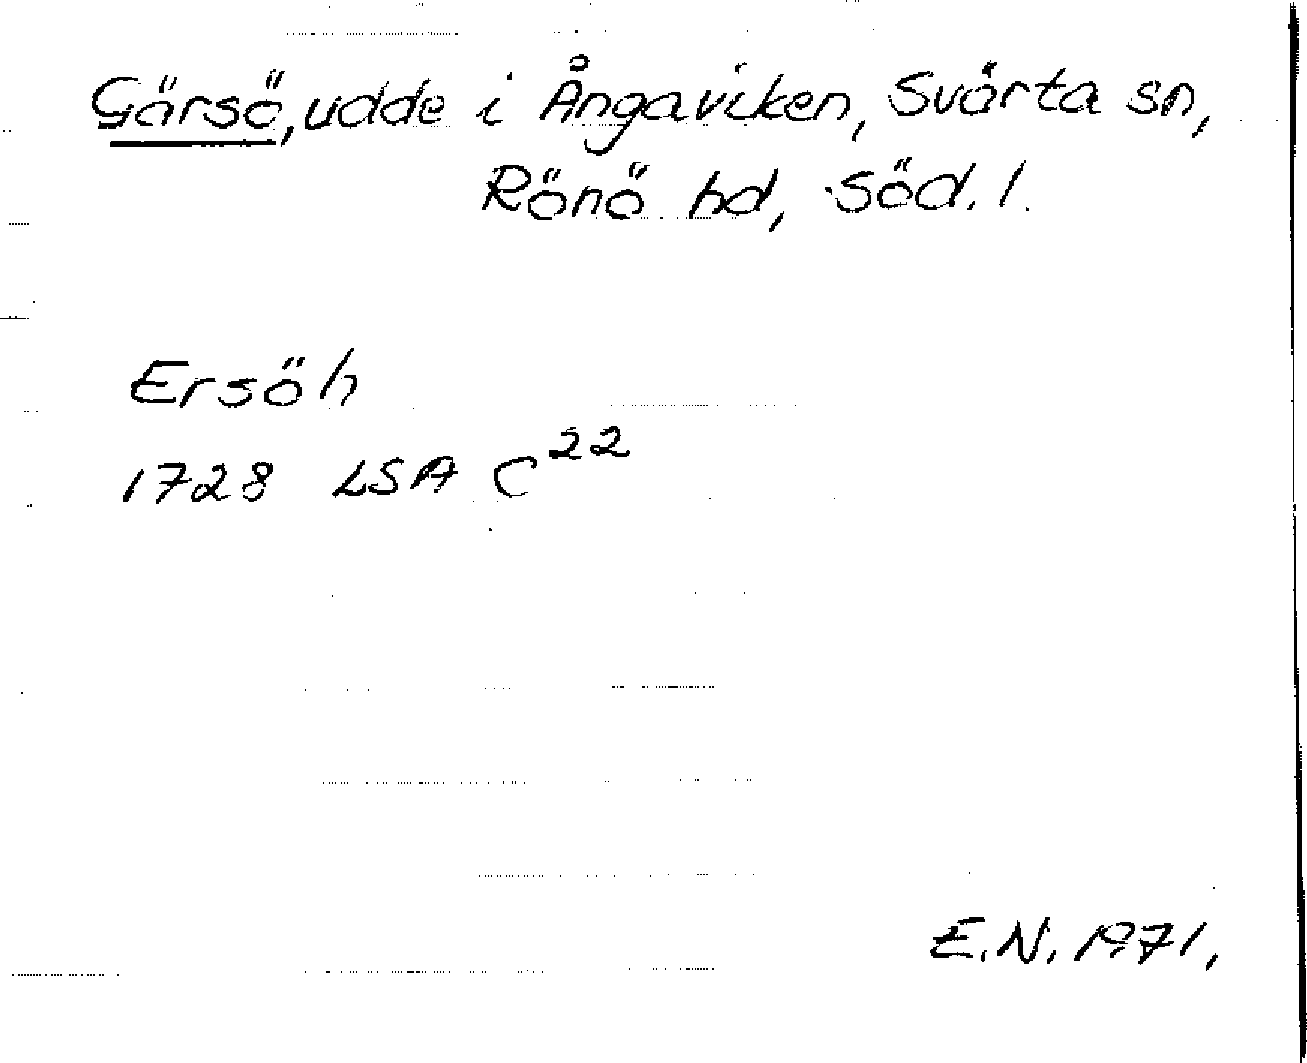 Gärsö, udde i Ångaviken, Svärta sn,
Rönö hd, Söd. l.
Ersöh
1728 LSA C²²
E.N. 1971.